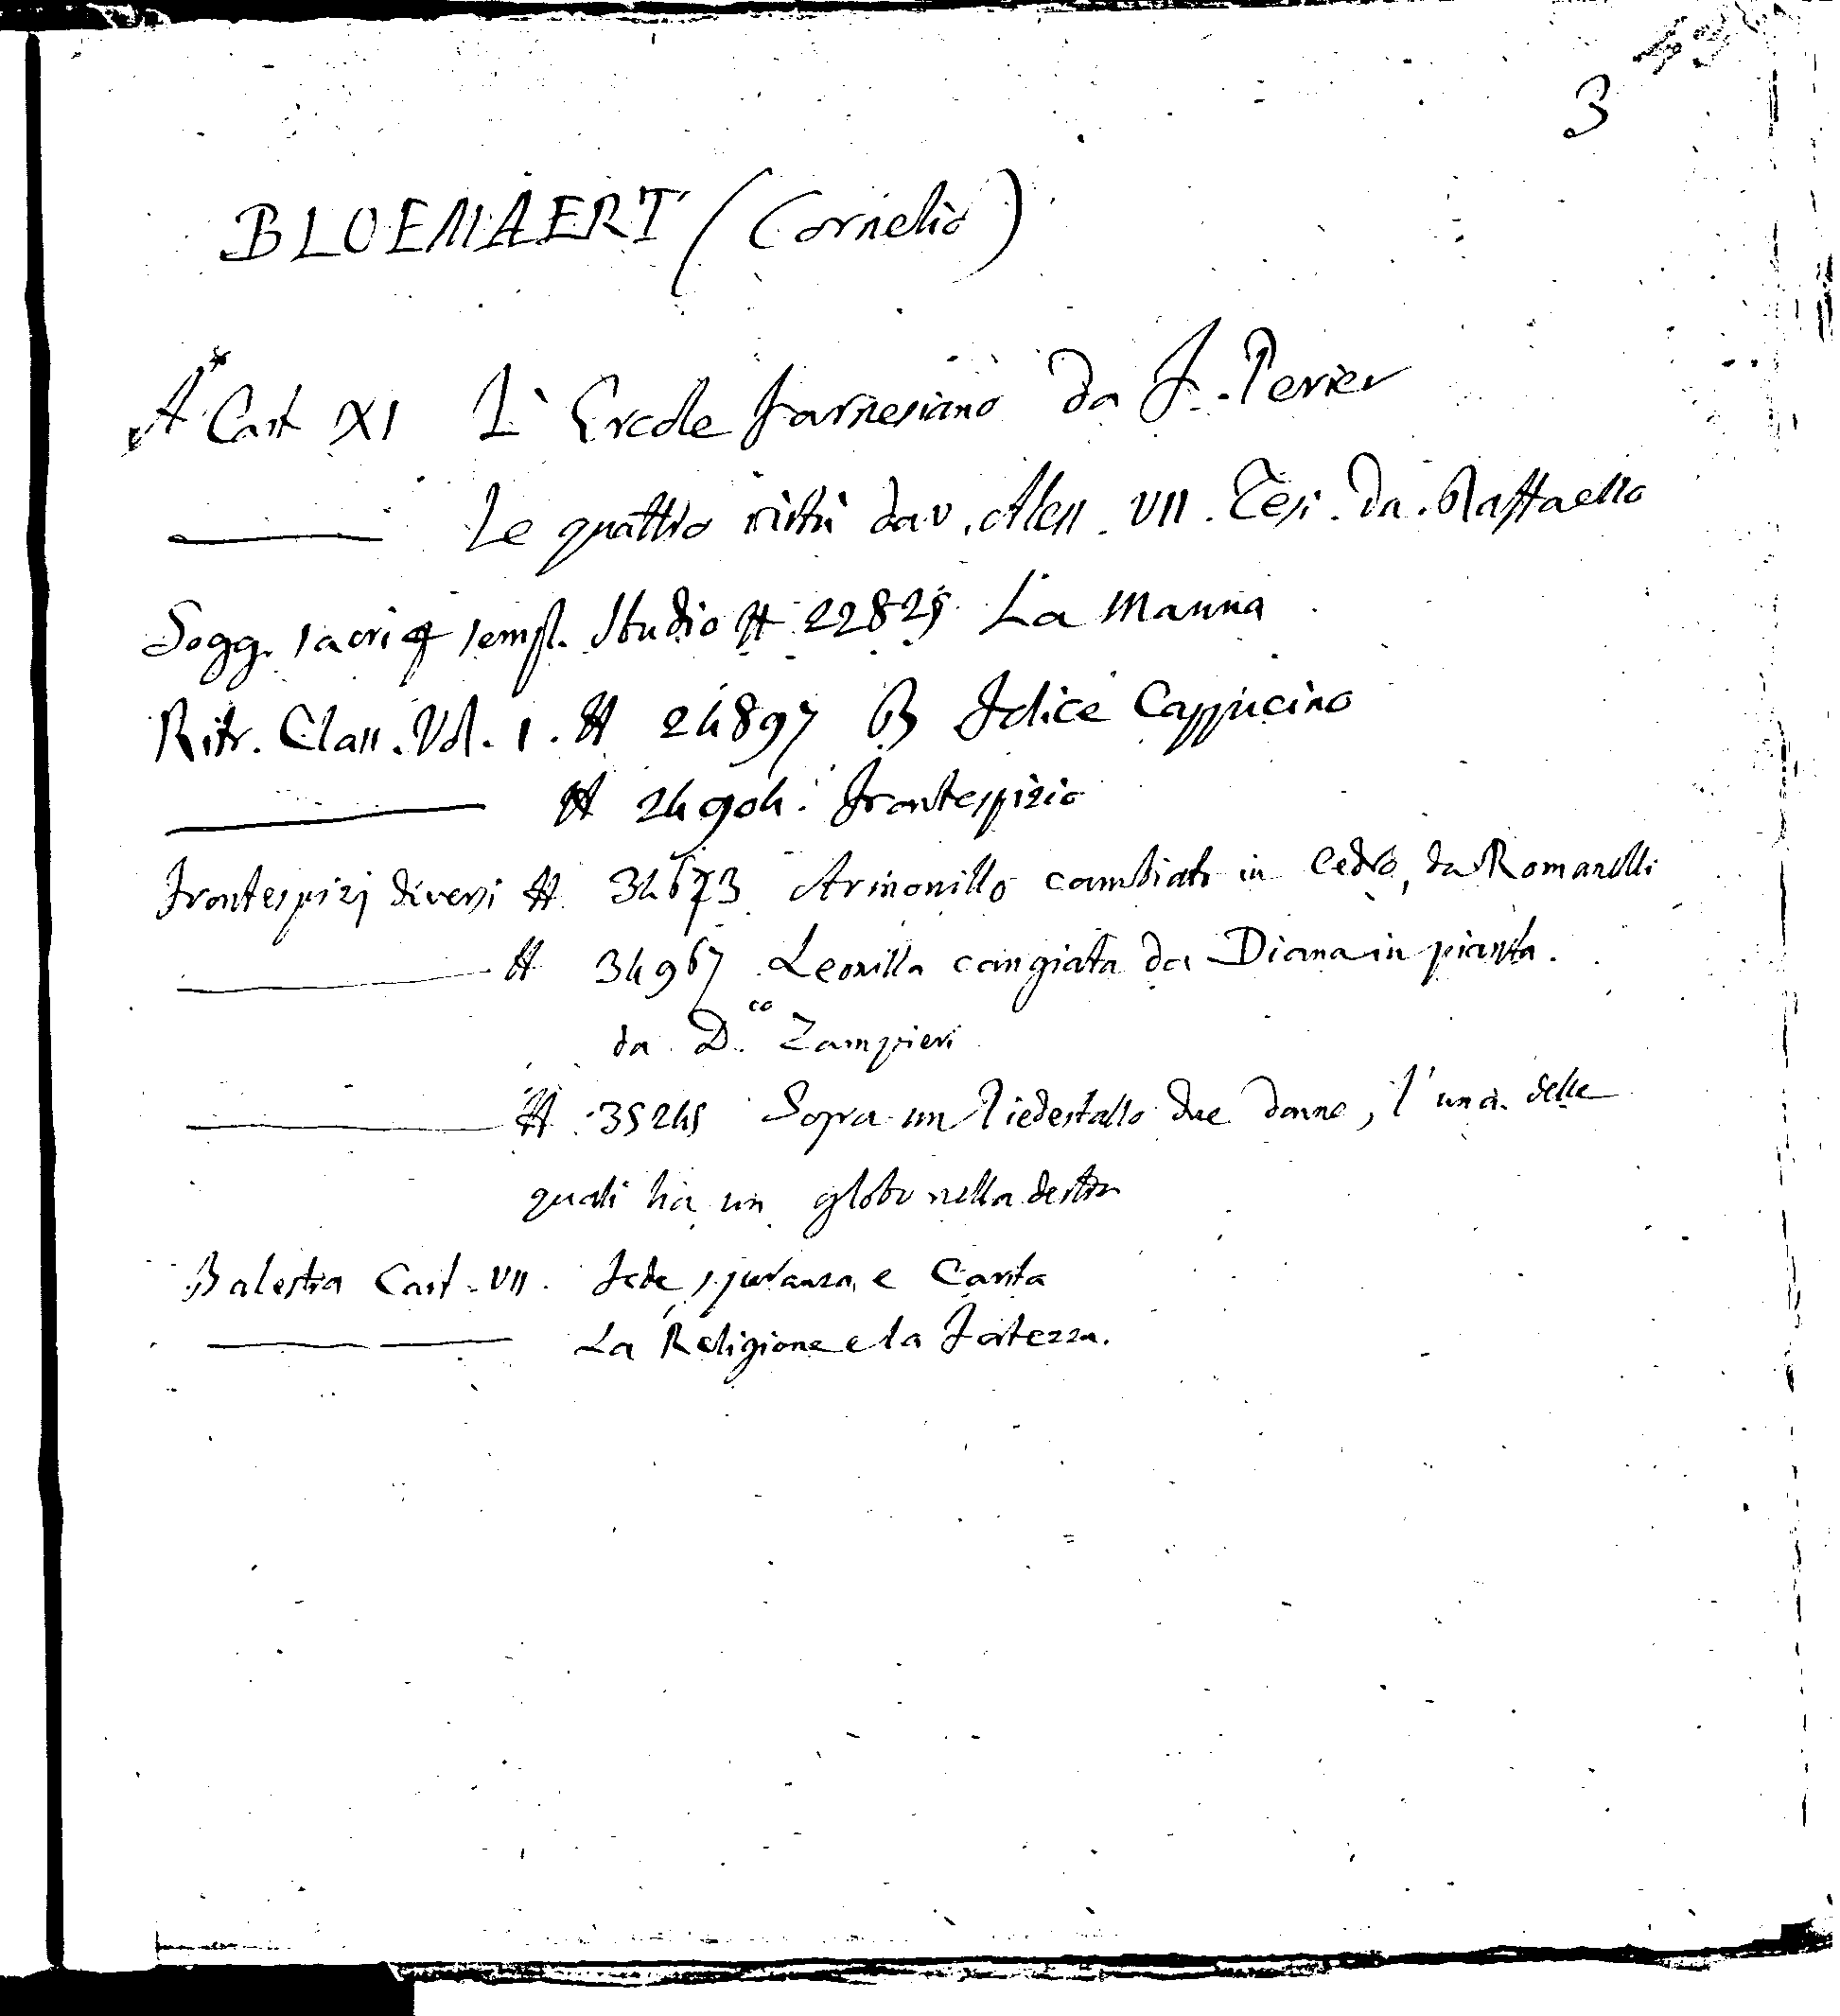 3
BLOEMAERT (Cornelio)
A* Cart XI L'Ercole Farnesiano da F. Perier
Le quattro virtù dav. Aless. VII. Tesi. Da. Raffaello
Sogg. sacri sempl. Studio # 22825 La Manna
Ritr. Class. Vol. 1. # 24897 B Felice Cappucino
# 24904. Frontespizio
Frontespizj diversi # 34673 Armonillo cambiato in Cedro, da Romanelli
# 34967 Leonilla cangiata da Diana in pianta.
da D.co Zampieri
# 35245 Sopra un Piedestallo due donne, l'una delle
quali ha un globo nella destra
Balestra Cart. VII. Fede, speranza, e Carita
La Religione e la Fortezza.